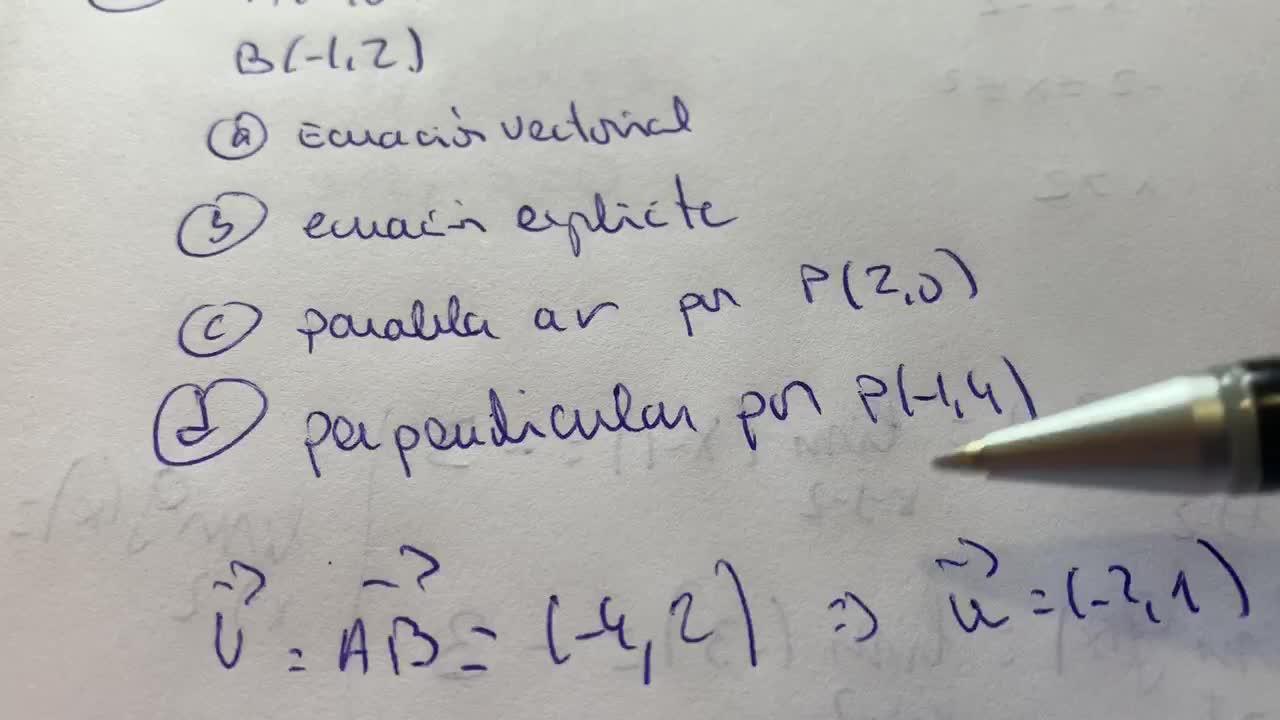 B(-1,2)
a ecuación vectorial
b ecuación explícita
c paralela a r por P(2,0)
d perpendicular por P(-1,4)
v⃗ = AB⃗ = (-4,2) => u⃗ = (-2,1)